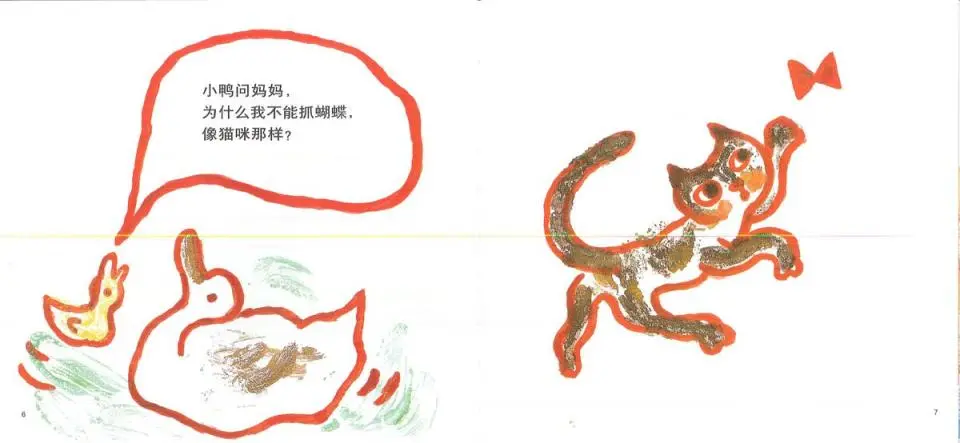 小鸭问妈妈，
为什么我不能抓蝴蝶，
像猫咪那样？
6
7